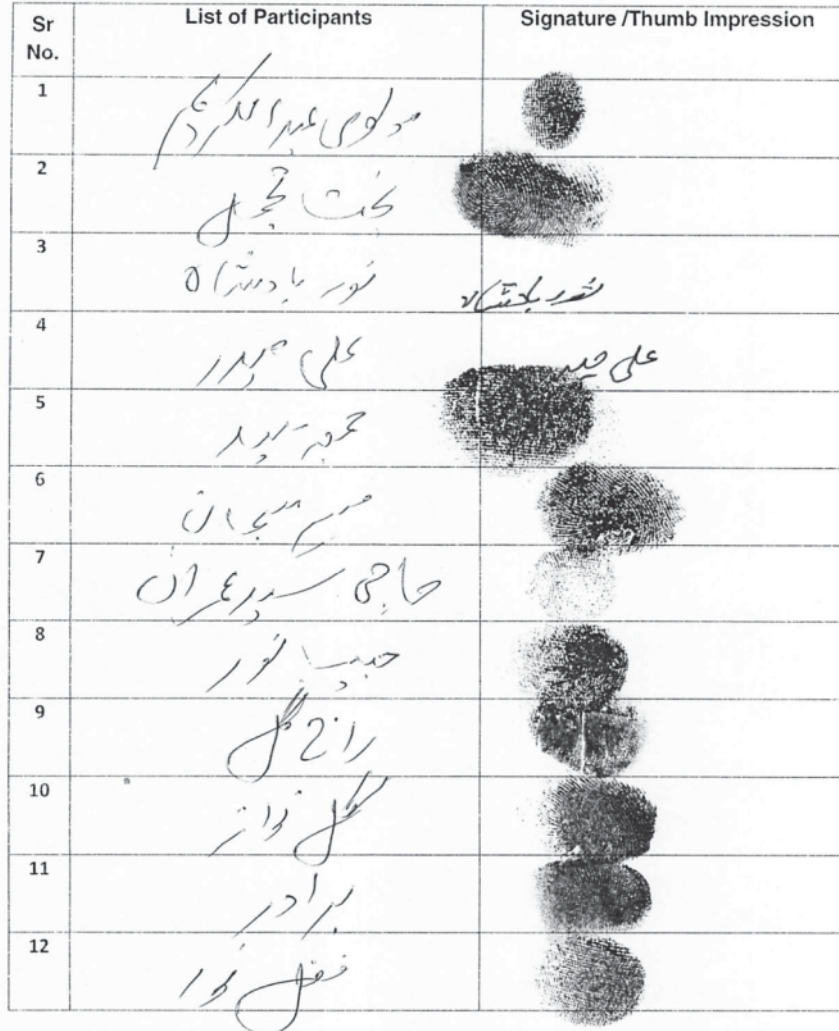 Sr No. List of Participants Signature /Thumb Impression
1 مولوی عبدالکریم
2 بخت جمل
3 نور بادشاہ نور بادشاہ
4 علی حیدر علی حیدر
5
6
7 حاجی سید عمران
8 حبیب نور
9 گل
10 گل نواز
11 برادر
12